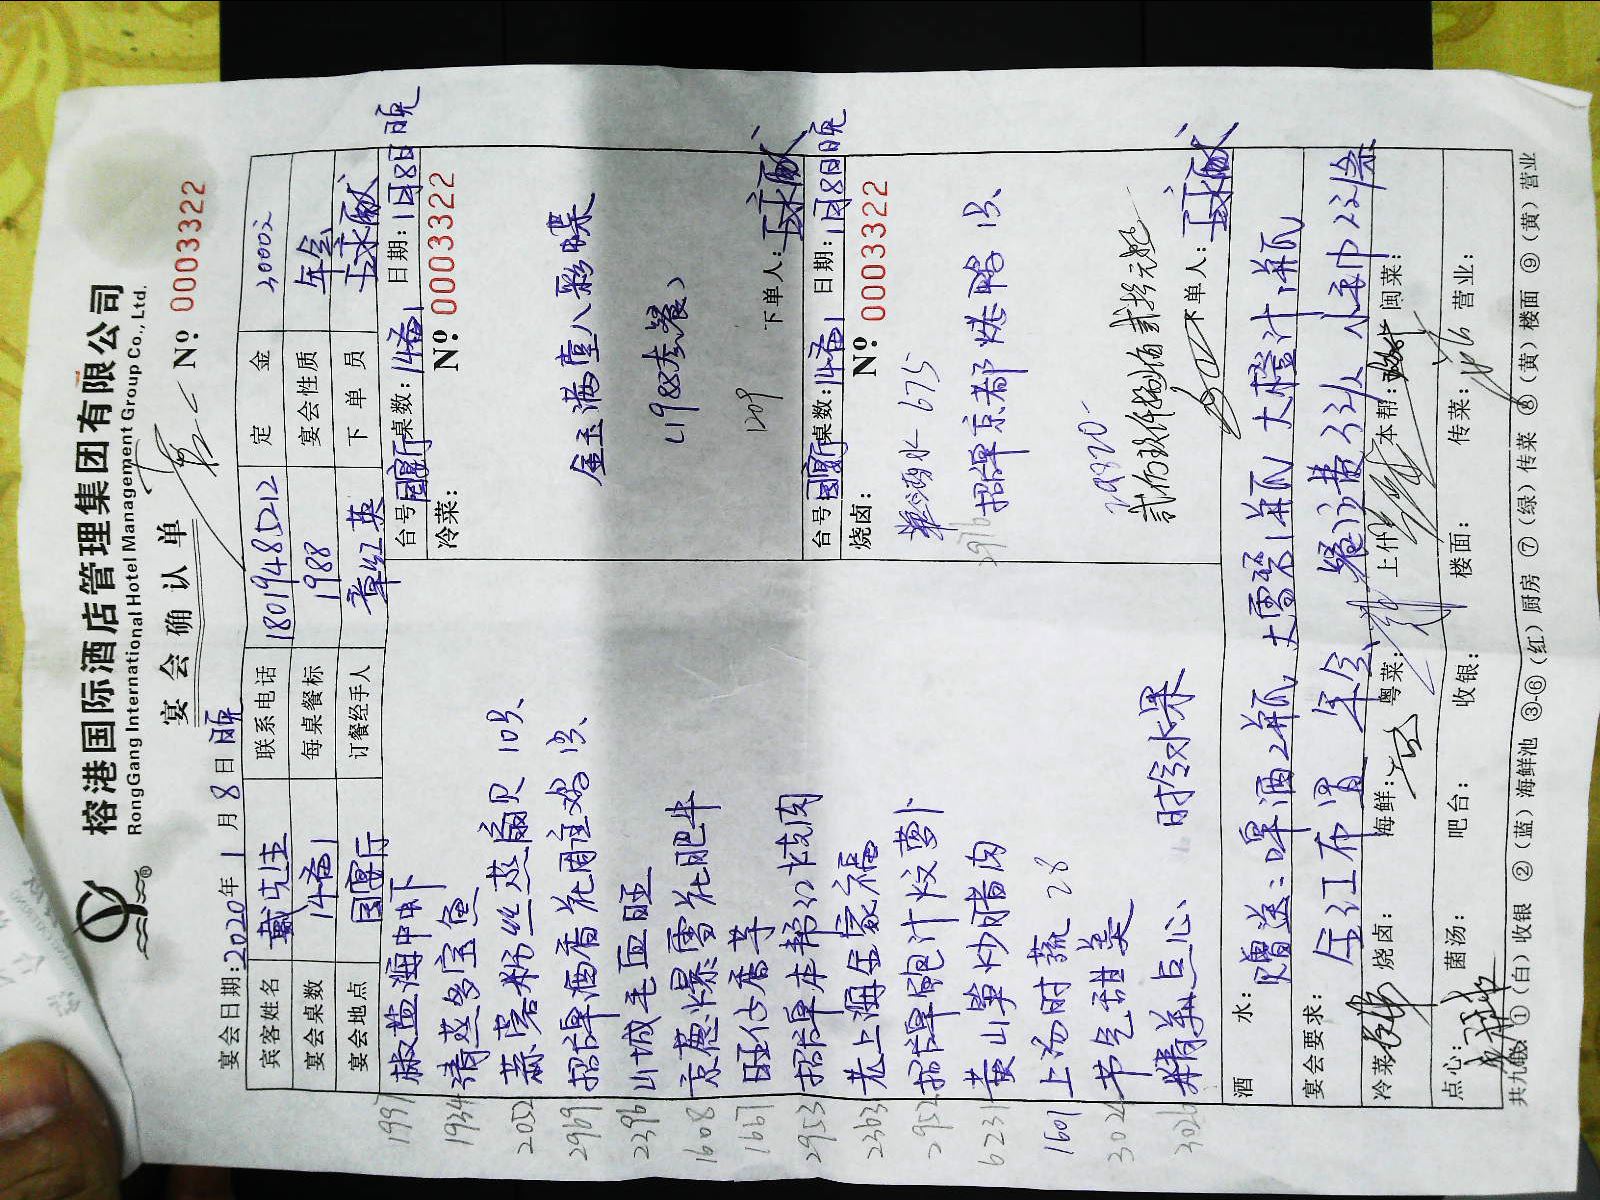 榕港国际酒店管理集团有限公司
RongGang International Hotel Management Group Co., Ltd.
宴会确认单
Nº 0003322
宴会日期:2020年1月8日晚
宾客姓名 戴先生 联系电话 18019485212 定金
宴会桌数 14备1 每桌餐标 1988 宴会性质 年会
宴会地点 国宴厅 订餐经手人 章红英 下单员
1997 椒盐海中虾
1934 清蒸多宝鱼
2052 蒜蓉粉丝蒸扇贝 10只
2969 招牌酒香花雕鸡 1只
2396 山城毛血旺
1608 京葱爆雪花肥牛
1667
2953 招牌本帮红烧肉
2363 老上海全家福
2952 招牌鲍汁炆萝卜
6231 黄山笋炒腊肉
1601 上汤时蔬 28
3024 节气甜羹
3026 精美点心、 时令水果
台号 国宴厅 桌数:14备1 日期:1月8日晚
冷菜: Nº 0003322
金玉满堂八彩碟
(1988套餐)
1209
下单人:
台号 国宴厅 桌数:14备1 日期:1月8日晚
烧卤: Nº 0003322
675
招牌京都烤鸭 1只
29820
下单人:
酒水: 赠送:啤酒2瓶 大雪碧1瓶 大橙汁1瓶
宴会要求: 年会
冷菜: 烧卤: 海鲜: 粤菜: 上什: 本帮: 闽菜:
点心: 菌汤: 吧台: 收银: 楼面: 传菜: 营业:
共九联 ①(白)收银 ②(蓝)海鲜池 ③-⑥(红)厨房 ⑦(绿)传菜 ⑧(黄)楼面 ⑨(黄)营业